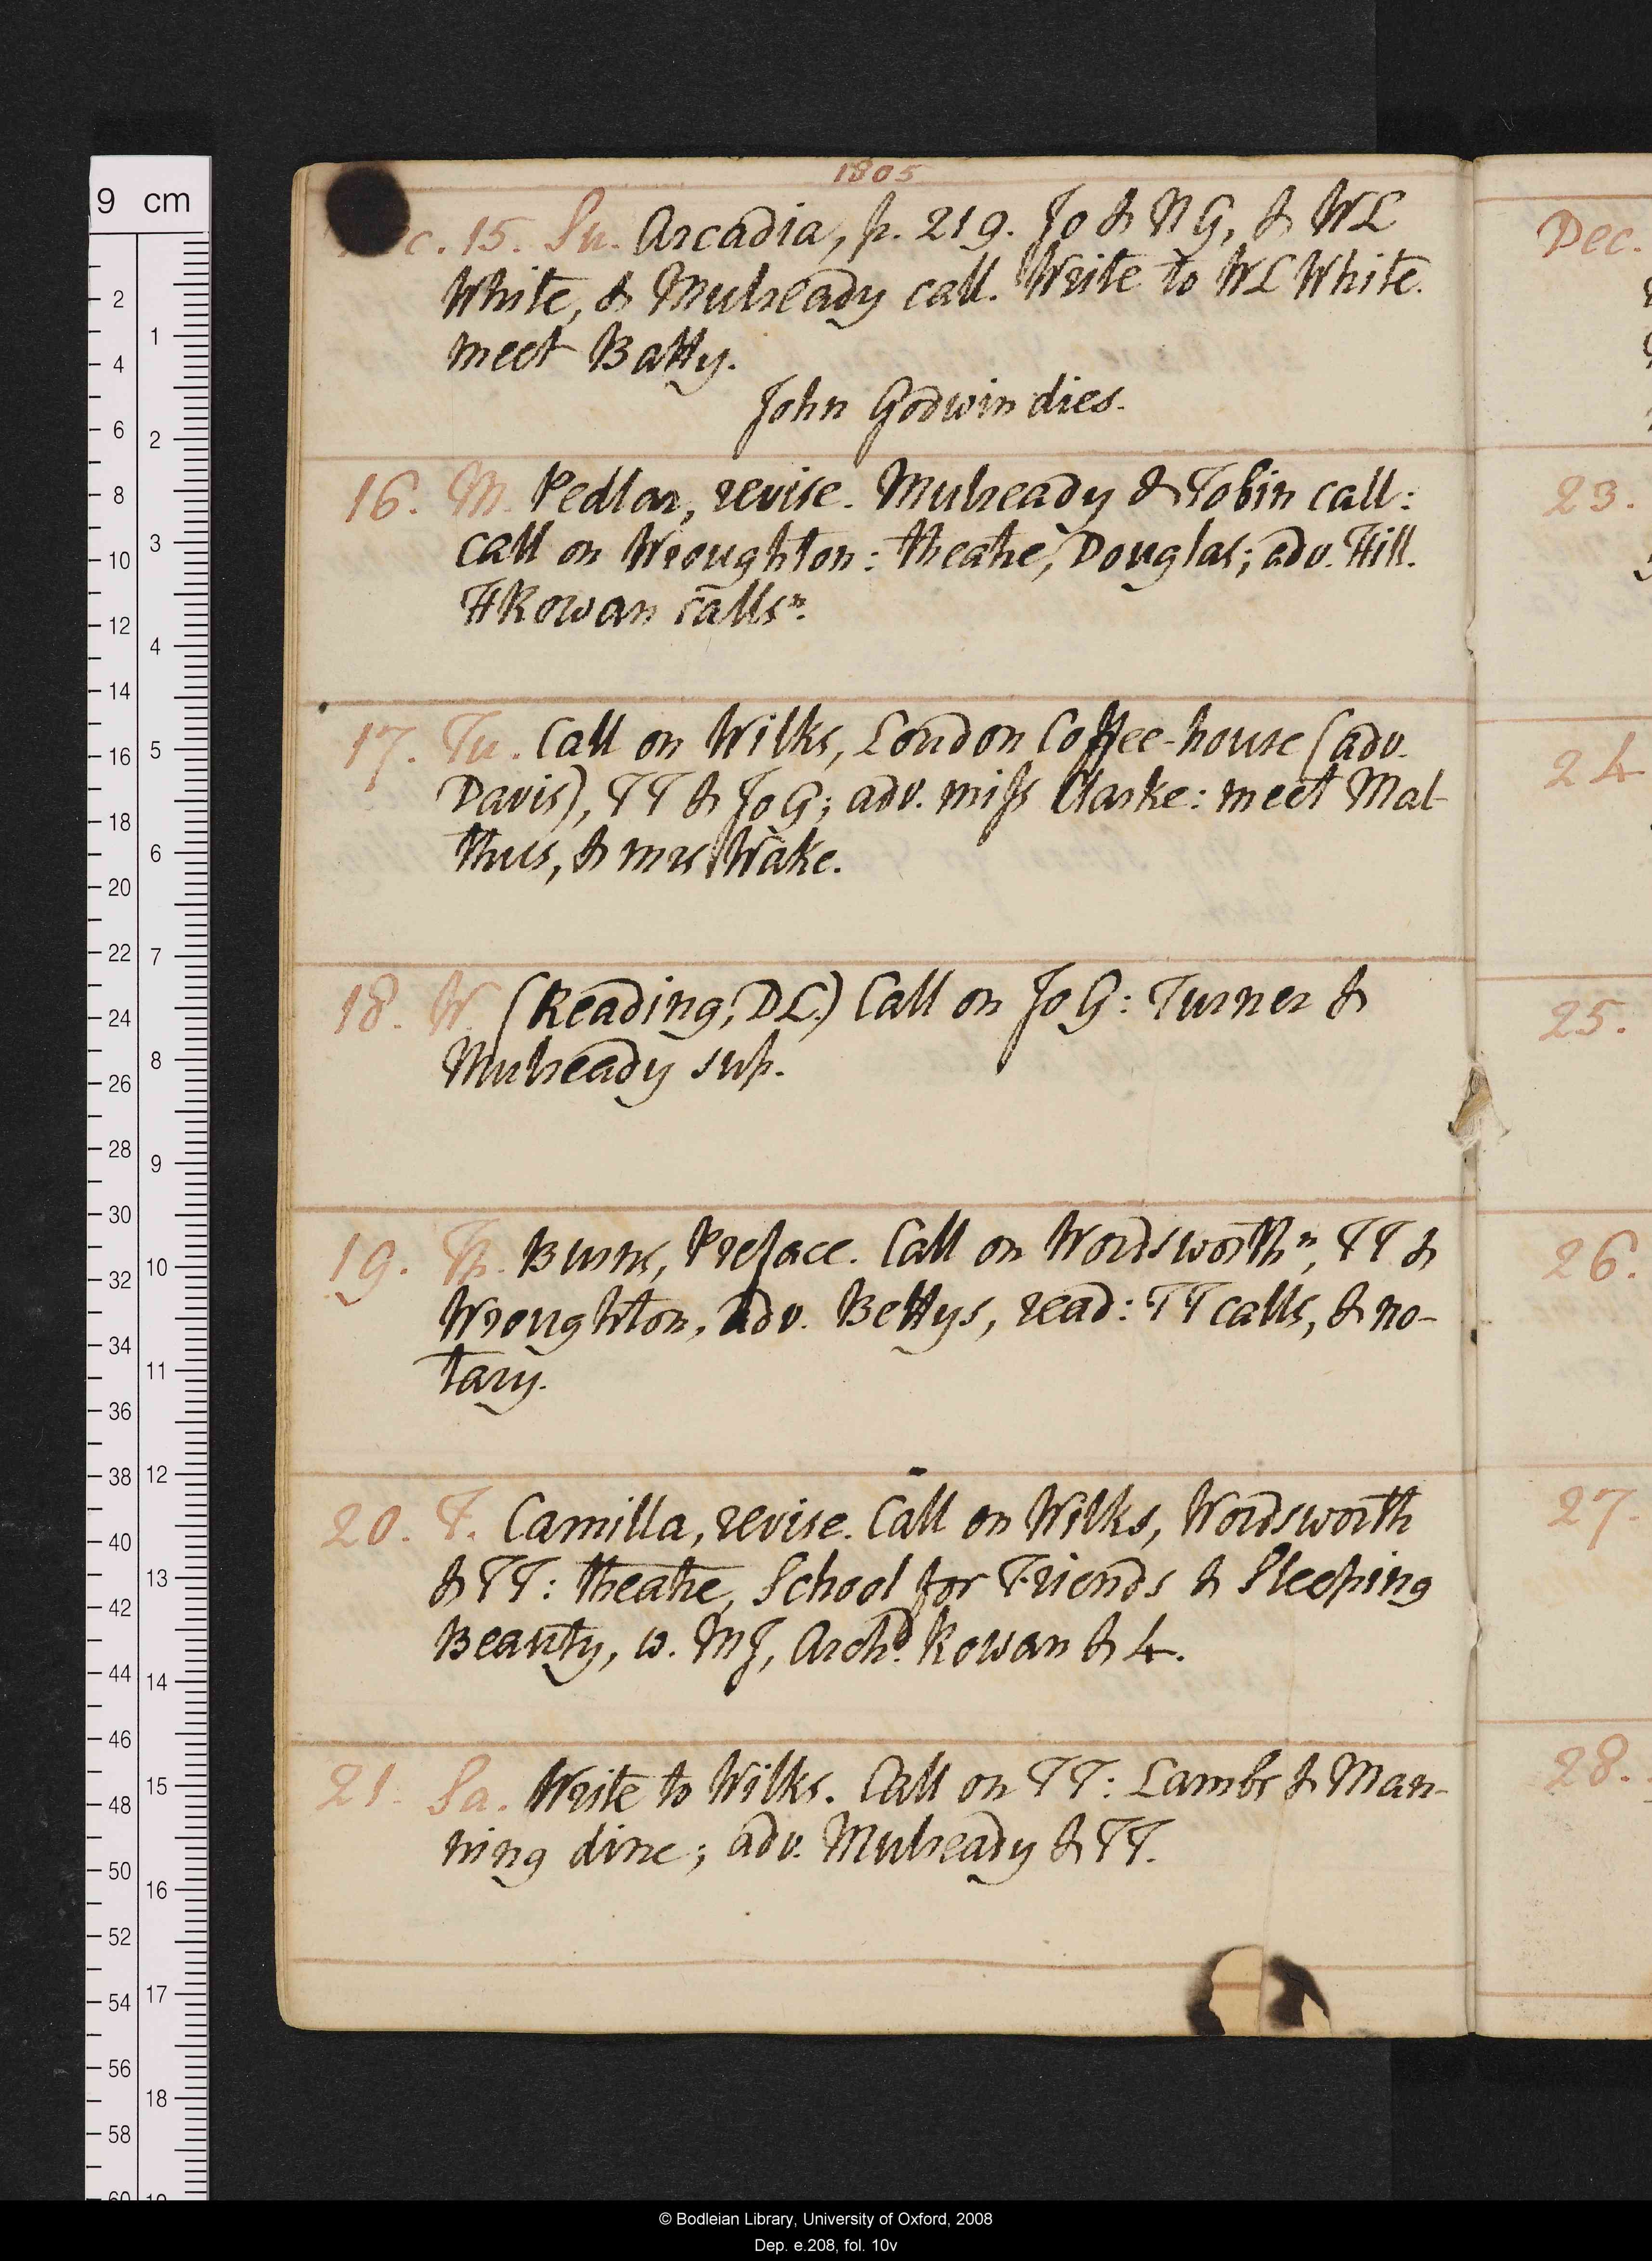 1805
c. 15. Su. Arcadia, p. 219. Jo & N G, & WL
White, & Mulready call. Write to WL White.
meet Batty.
John Godwin dies.
16. M. Pedlar, revise. Mulready & Tobin call:
call on Wroughton: theatre, Douglas; adv. Hill.
HRowan callsⁿ.
17. Tu. Call on Wilks, London Coffee-house (adv.
Davis), TT & Jo G; adv. miss Clarke: meet Mal
thus, & mrs Wake.
18. W. (Reading, DL.) Call on Jo G: Turner &
Mulready sup.
19. Th. Burns, Preface. Call on Wordsworthⁿ, TT &
Wroughton, adv. Bettys, read: TT calls, & no-
tary.
20. F. Camilla, revise. Call on Wilks, Wordsworth
& TT: theatre, School for Friends & Sleeping
Beauty, w. MJ, Archᵈ. Rowan & 4.
21. Sa. Write to Wilks. Call on TT: Lambs & Man-
ning dine; adv. Mulready & TT.
Dec.
23.
24
25.
26.
27.
28.
9 cm
2
4
6
8
10
12
14
16
18
20
22
24
26
28
30
32
34
36
38
40
42
44
46
48
50
52
54
56
58
60
1
2
3
4
5
6
7
8
9
10
11
12
13
14
15
16
17
18
© Bodleian Library, University of Oxford, 2008
Dep. e.208, fol. 10v